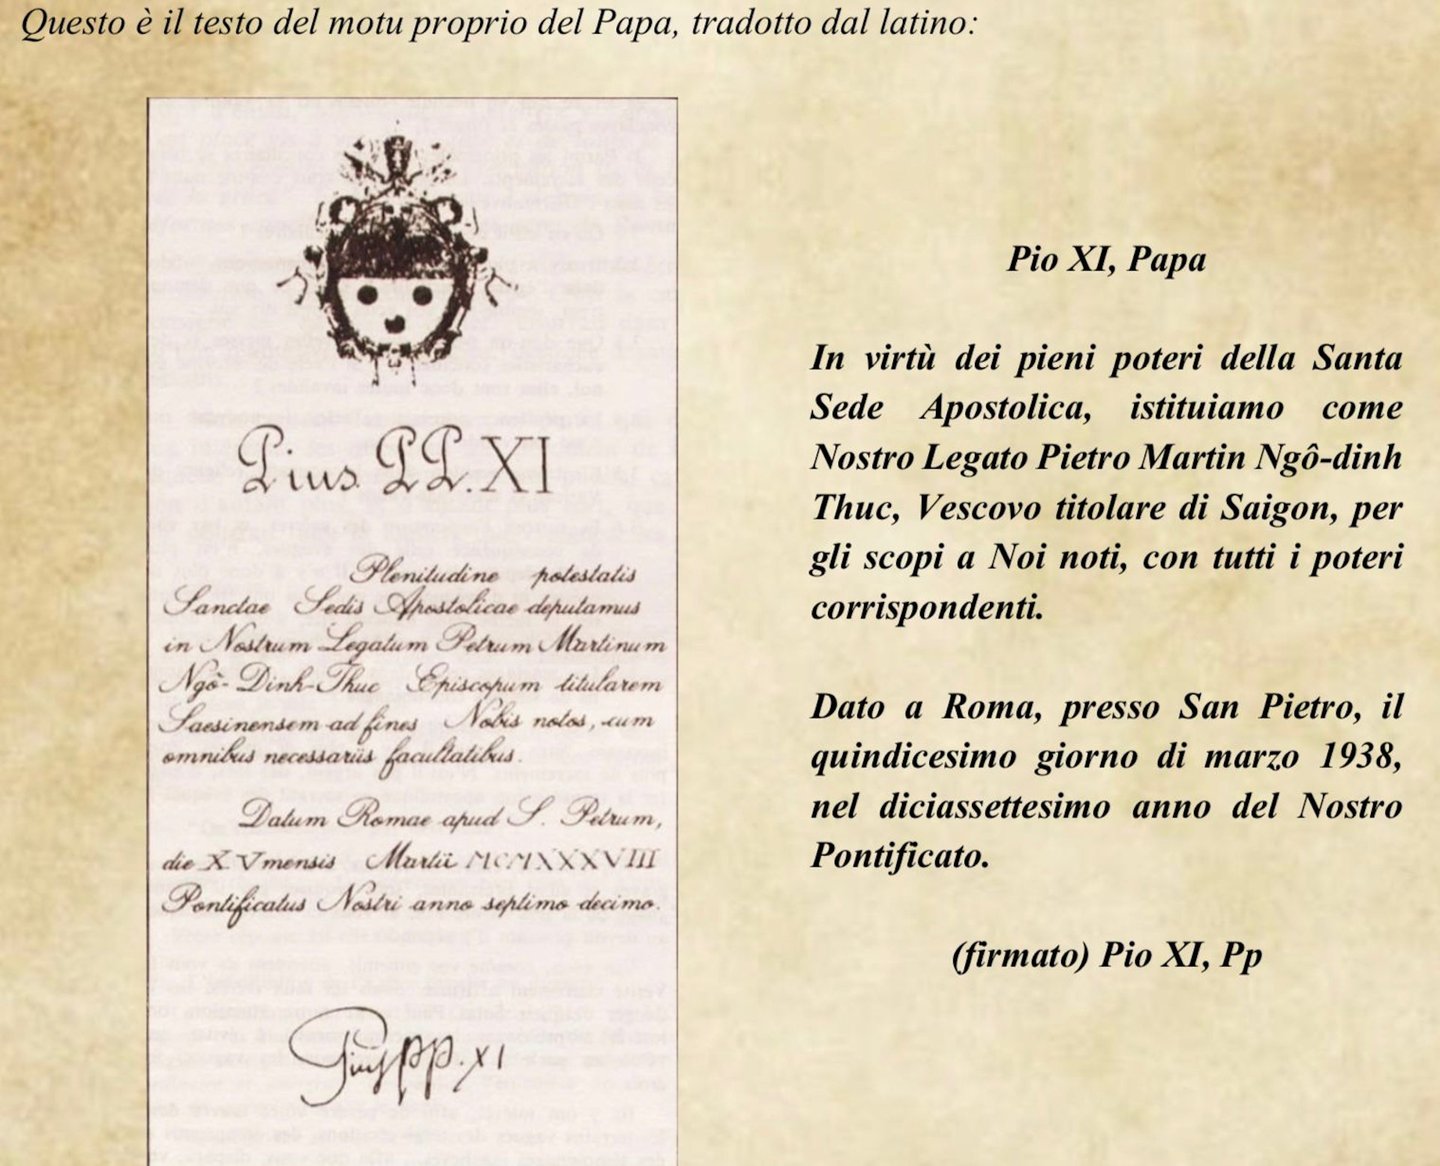 Questo è il testo del motu proprio del Papa, tradotto dal latino:
Pius PP. XI
Plenitudine potestatis
Sanctae Sedis Apostolicae deputamus
in Nostrum Legatum Petrum Martinum
Ngô-Dinh-Thuc Episcopum titularem
Saesinensem ad fines Nobis notos, cum
omnibus necessariis facultatibus.
Datum Romae apud S. Petrum,
die XV mensis Martii MCMXXXVIII
Pontificatus Nostri anno septimo decimo.
Pius PP. XI
Pio XI, Papa
In virtù dei pieni poteri della Santa
Sede Apostolica, istituiamo come
Nostro Legato Pietro Martin Ngô-dinh
Thuc, Vescovo titolare di Saigon, per
gli scopi a Noi noti, con tutti i poteri
corrispondenti.
Dato a Roma, presso San Pietro, il
quindicesimo giorno di marzo 1938,
nel diciassettesimo anno del Nostro
Pontificato.
(firmato) Pio XI, Pp